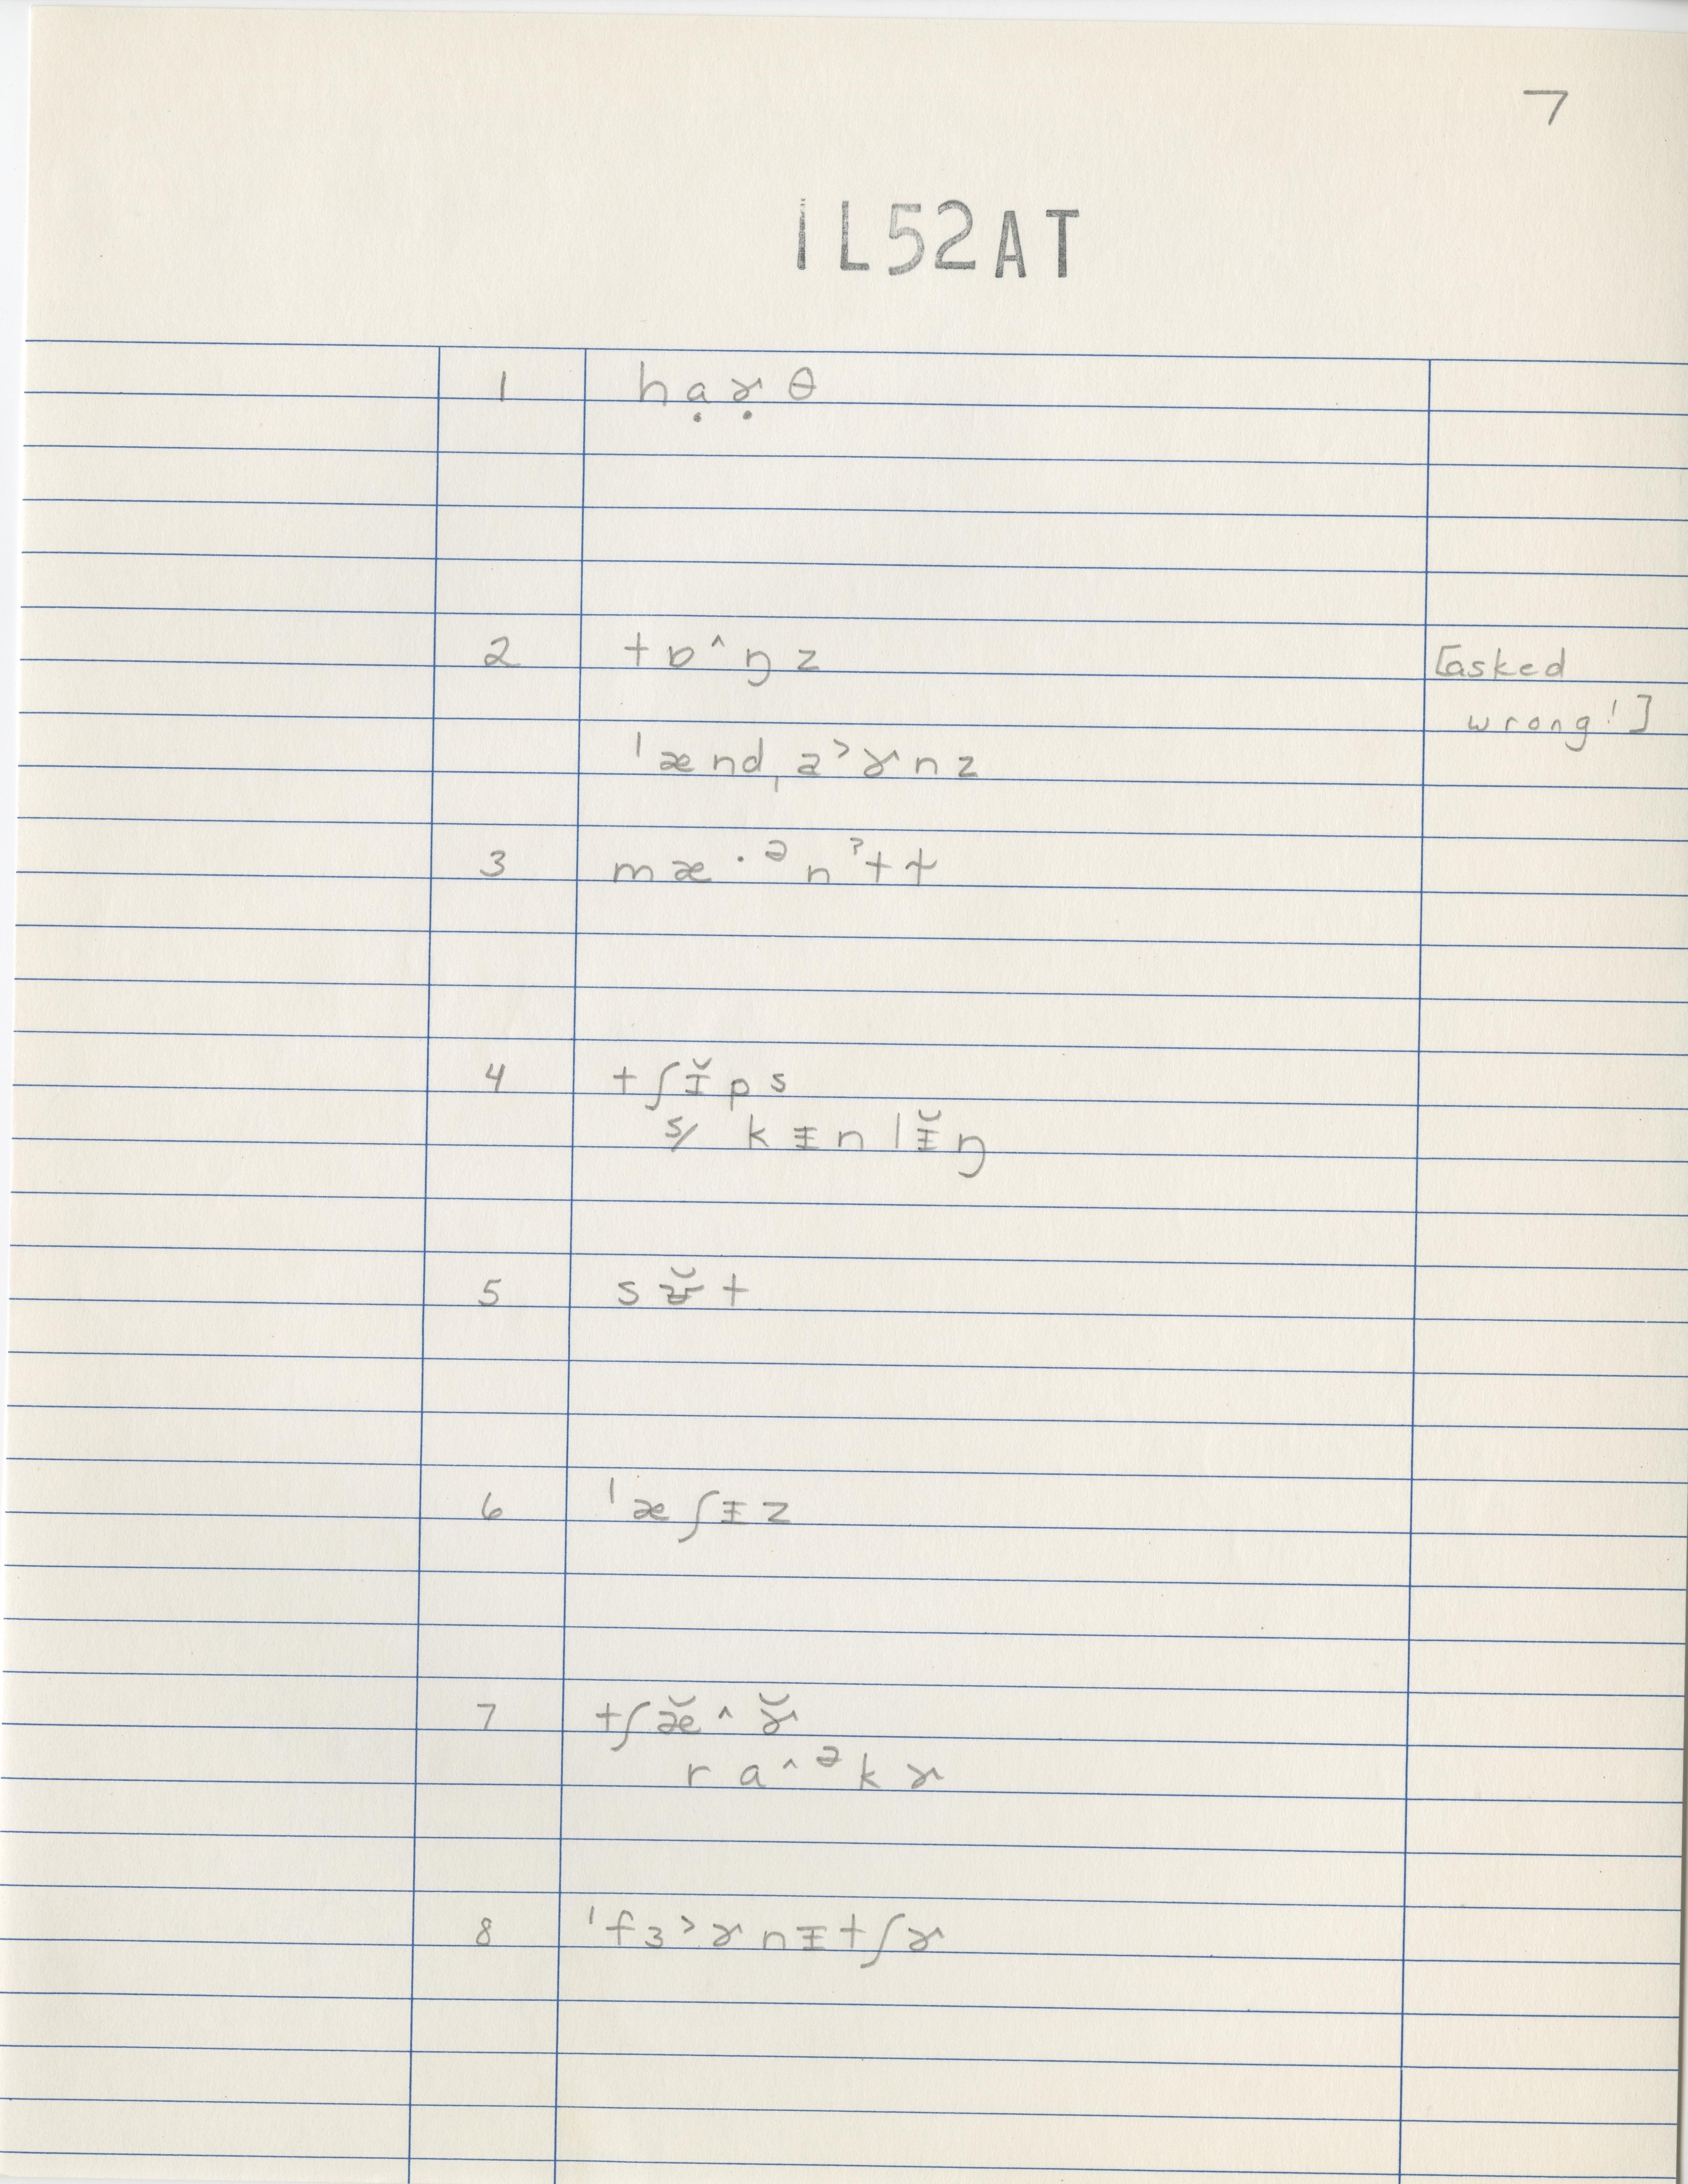 7
IL52AT
1 hạɚ̣θ
2 tɒ^ŋz [asked
wrong!]
ˈændˌa>ɚnz
3 mæ·ᵊnˀtɫ
4 tʃɪ̆ps
s/ kɪ̵nlɪ̵̆ŋ
5 sʊ̆t
6 ˈæʃɪ̵z
7 tʃæ̆^ɚ̆
ra^ᵊkɚ
8 ˈfɜ>ɚnɪ̵tʃɚ